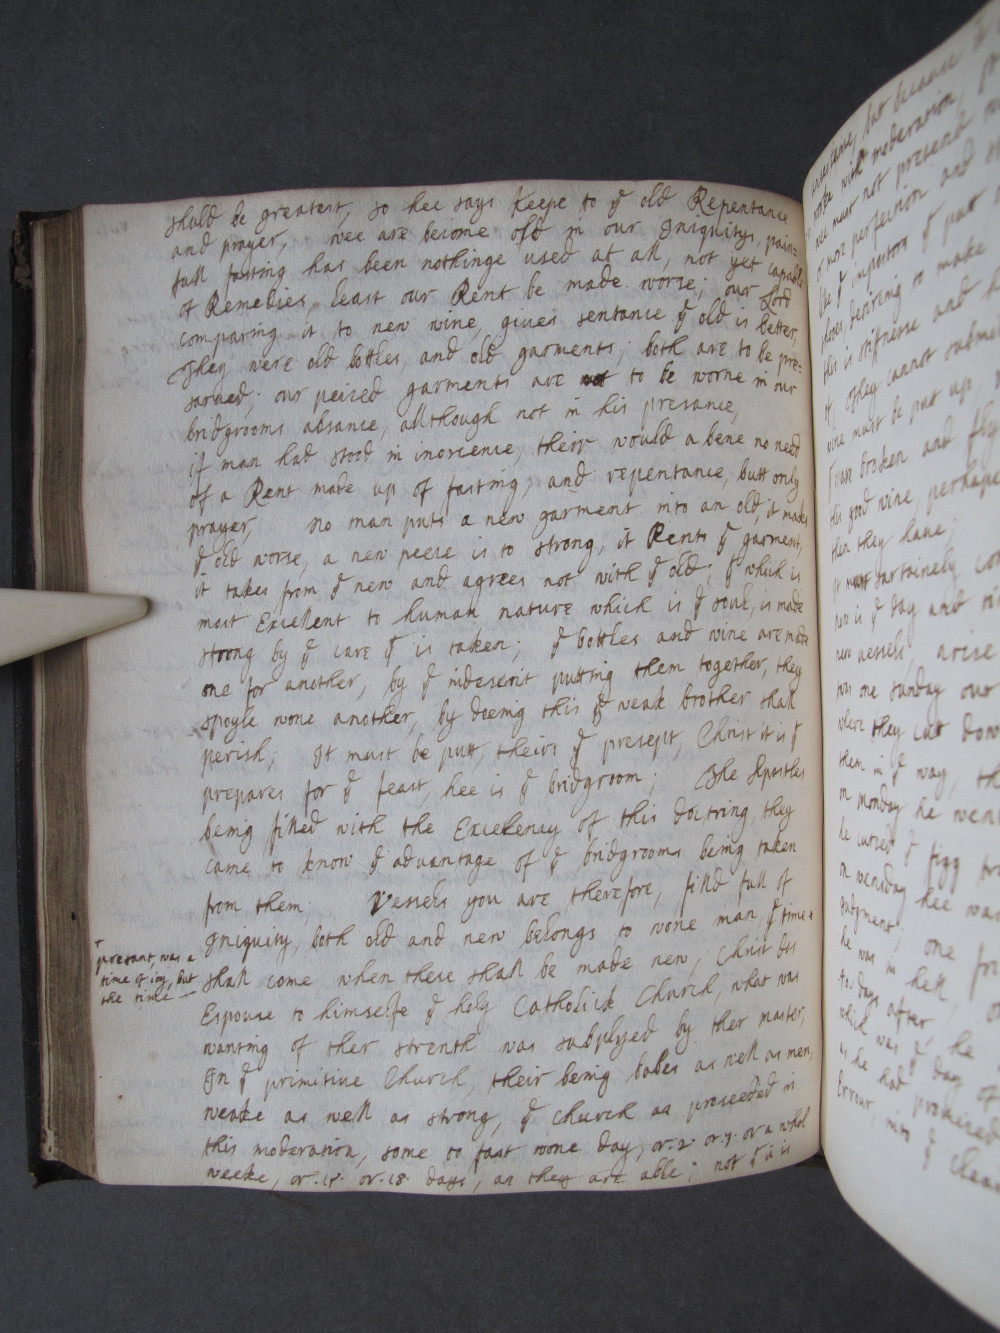 shuld be greatest, so hee says keepe to yͤ old Repentance
and prayer, wee are become old in our Iniquitys, pain=
full fasting has been nothinge used at all, not yet capable
of Remedies, least our Rent be made worse; our Lord
comparing it to new wine, gives sentance yͤ old is better,
They were old bottles, and old garments; both are to be pre=
sarved; our peiced garments are to be worne in our
bridgrooms absance, allthough not in his presance,
if man had stood in inocence, their would a bene no need
of a Rent made up of fasting, and repentance, butt only
prayer, no man puts a new garment into an old, it makes
yͤ old worse, a new peece is to strong, it Rents yͤ garment,
it takes from yͤ new and agrees not with yͤ old; yͭ which is
most Excelent to human nature which is yͤ soul, is made
stroong by yͤ care yͭ is taken; yͤ bottles and wine are made
one for another, by yͤ indescrit putting them together, they
spoyle wone another, by doeing this yͤ weak brother shall
perish; It must be putt, theirs yͤ presept, Christ it is yͭ
prepares for yͤ feast, hee is yͤ bridgroom; The Apostles
being filled with the Excelency of this doctring, they
came to know yͤ advantage of yͤ bridgrooms being taken
from them. Vessels you are therefore, filld full of
Iniquity, both old and new belongs to wone man, yͤ time +
shall come when these shall be made new, Christ did
Espouse to himselfe yͤ holy Catholick Church, what was
wanting of ther strenth was subplyed by ther master,
In yͤ primitive Church, their being babes as well as men,
weake as well as strong, yͤ church as proseeded in
this moderation, some to fast wone day, or 2 or 3 or a whol
weeke, or 15 or 18 days, as they are able; not yͭ it is
+
presant, was a
time of ioy, but
the time —
but because
with moderation,
wee must not pretend
or more perfection and
yͤ impostors yͭ put
shoes, desireing to make
this is stifnesse and
They cannot submit
wine must be put up,
broken and
this good wine, perhaps
then they have;
it must sartainely
here is yͤ day and
new vessels, arise
was one sunday our
where they cut down
them in yͤ way,
on monday he went
he cursed yͤ figg
on wensday hee was
Iudgment, one
he was in hell,
to days after, he
which was yͤ day of
as he had promised
Errour, into yͤ